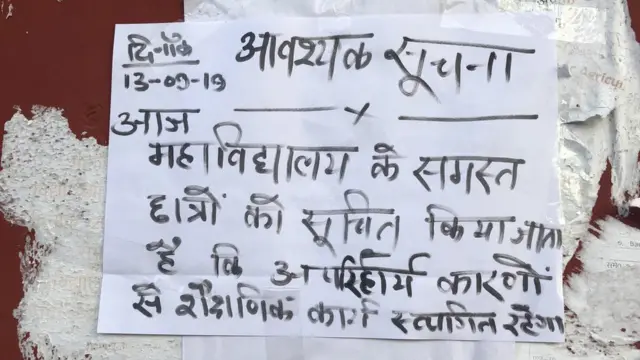 दिनाँक
13-09-19
आवश्यक सूचना
आज
महाविद्यालय के समस्त
छात्रों को सूचित किया जाता
है कि अपरिहार्य कारणों
से शैक्षणिक कार्य स्थगित रहेगा